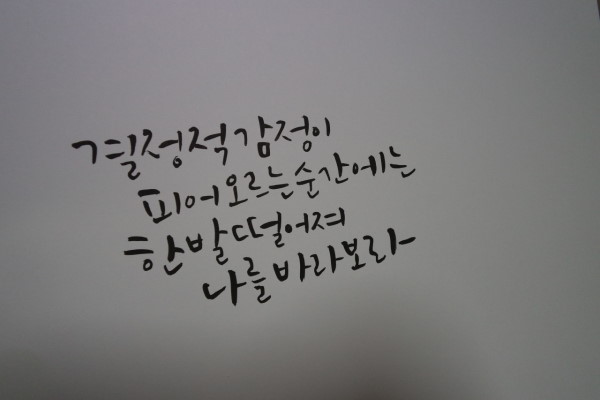 결정적 감정이
피어오르는 순간에는
한 발 떨어져
나를 바라보라